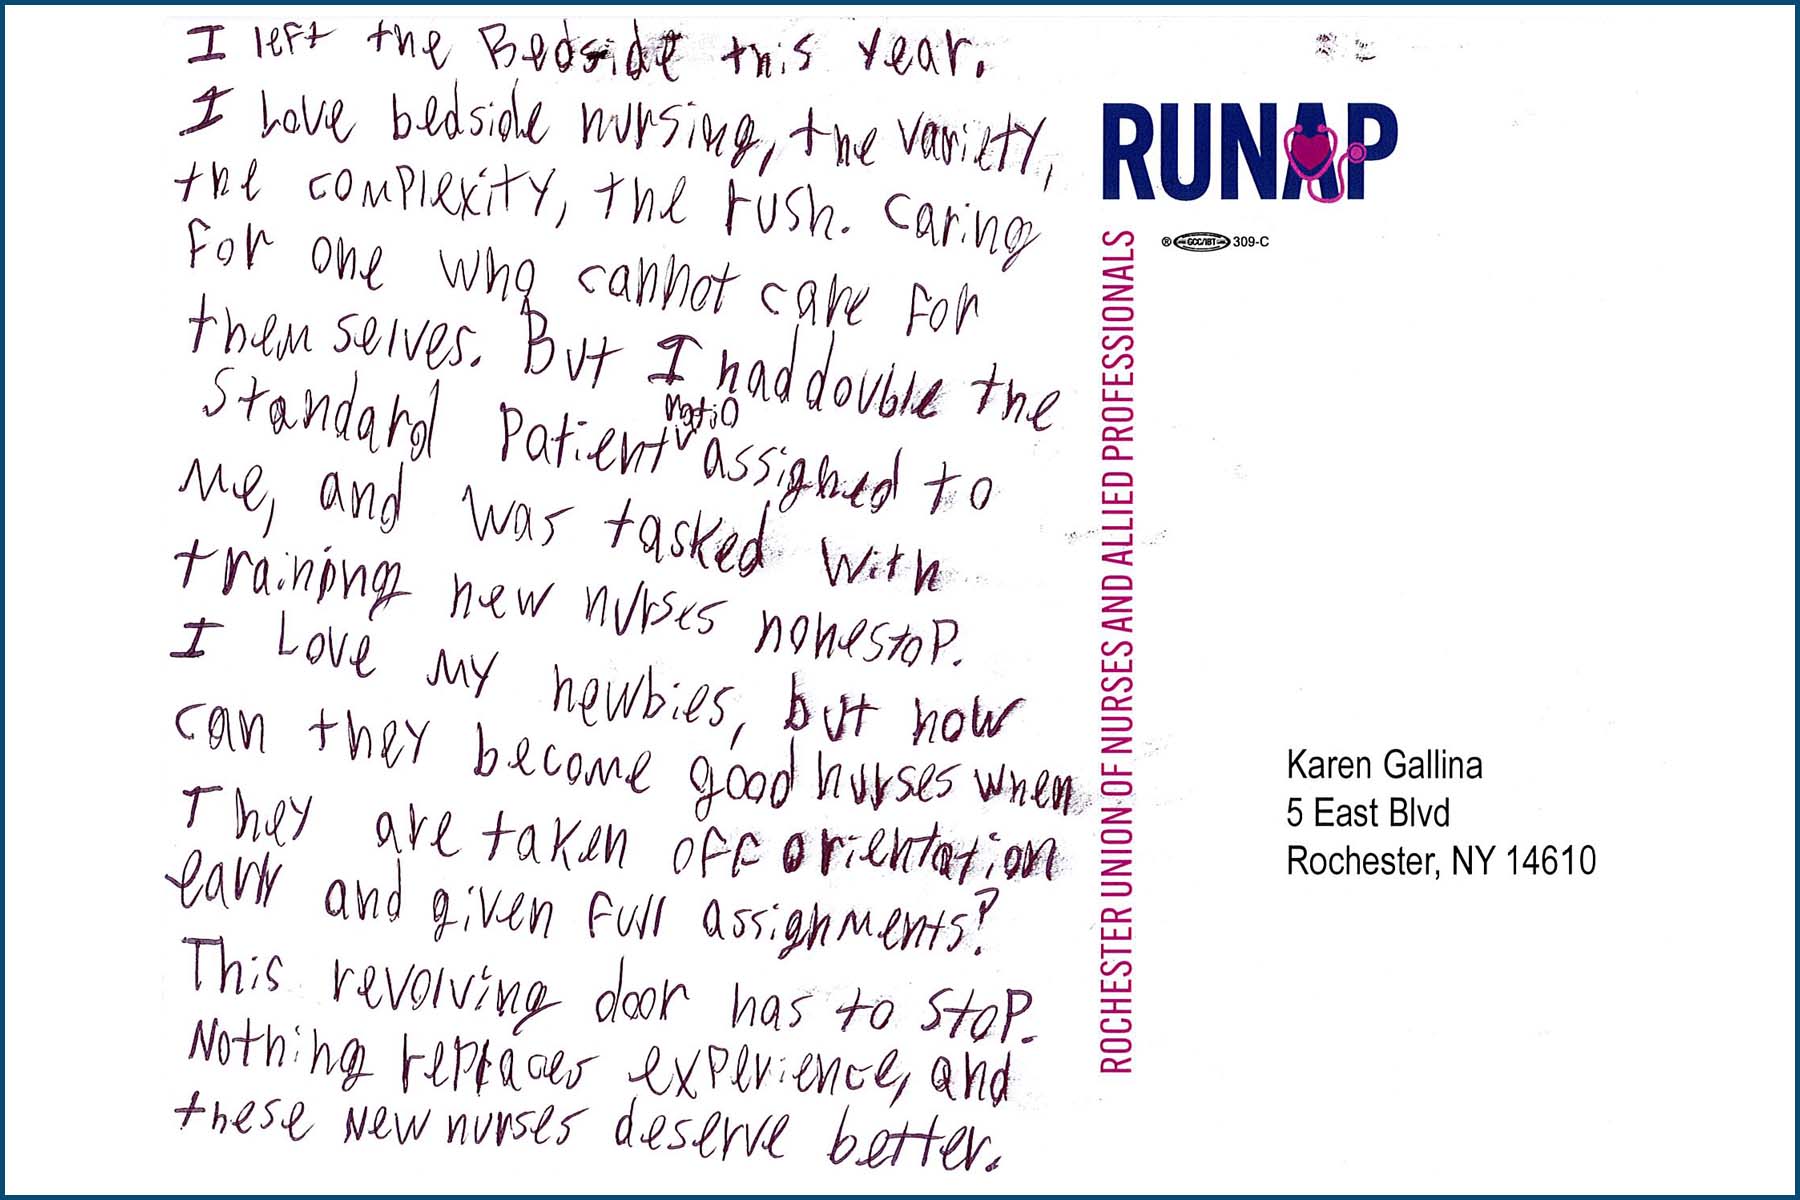 I left the Bedside this year.
I Love bedside nursing, the variety,
the complexity, the rush. Caring
for one who cannot care for
themselves. But I had double the
Standard patient ratio assigned to
me, and was tasked with
training new nurses nonestop.
I Love my newbies, but how
can they become good nurses when
They are taken off orientation
early and given full assignments?
This revolving door has to stop.
Nothing replaces experience, and
these new nurses deserve better.
RUNAP
® GCC/IBT 309-C
ROCHESTER UNION OF NURSES AND ALLIED PROFESSIONALS
Karen Gallina
5 East Blvd
Rochester, NY 14610